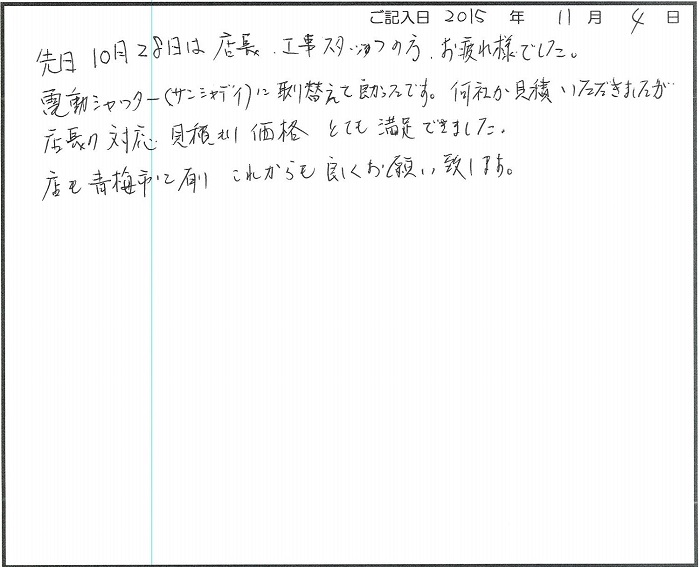 ご記入日 2015 年 11 月 4 日
先日 10月28日は 店長、工事スタッフの方、お疲れ様でした。
電動シャッター(サンシャディ)に取り替えて良かったです。何社か見積いただきましたが
店長の対応 見積り 価格 とても 満足できました。
店も青梅市に有り これからも良くお願い致します。